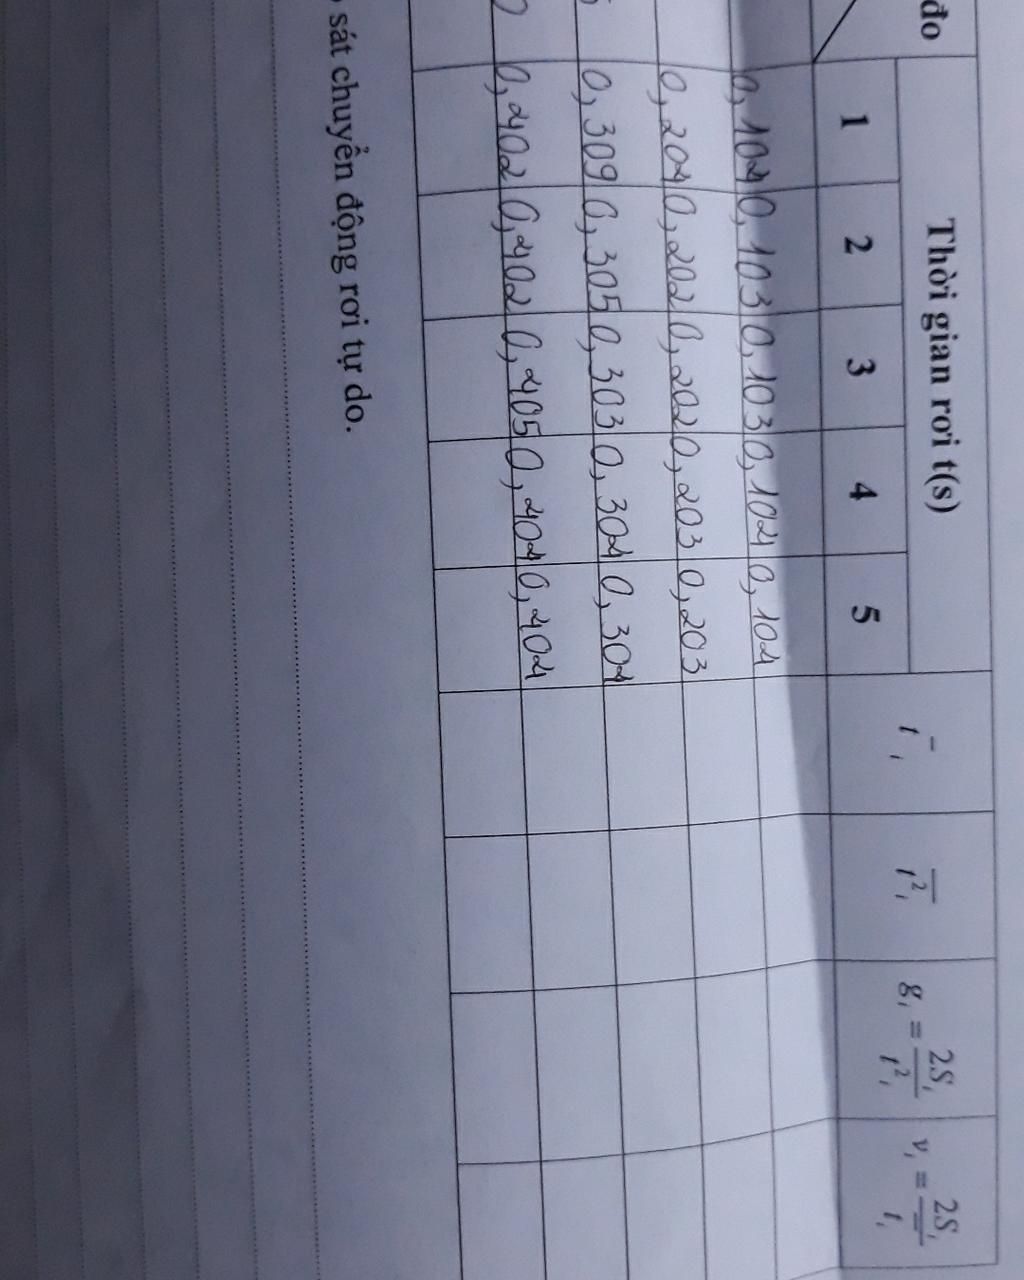 đo Thời gian rơi t(s) t̄ᵢ t̄²ᵢ gᵢ = 2Sᵢ/t̄²ᵢ vᵢ = 2Sᵢ/t̄ᵢ
1 2 3 4 5
0,104 0,103 0,103 0,104 0,104
0,204 0,202 0,202 0,203 0,203
0,309 0,305 0,303 0,304 0,304
0,402 0,402 0,405 0,404 0,404
sát chuyển động rơi tự do.